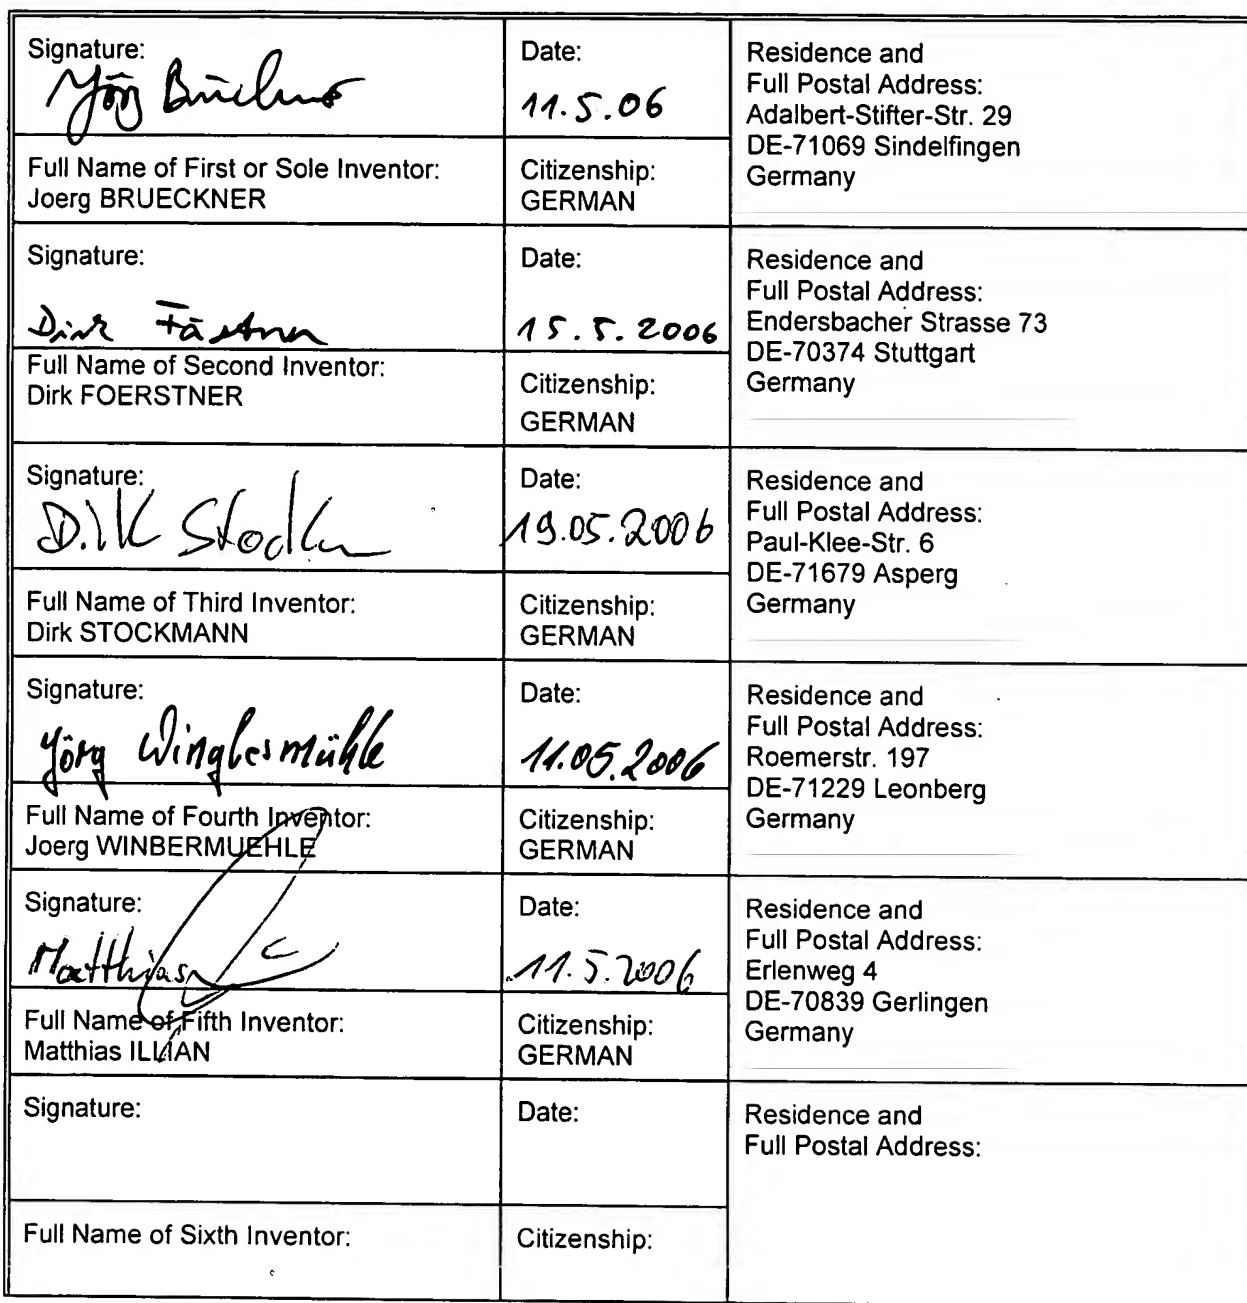 Signature:
Jörg Brückner
Date:
11.5.06
Residence and
Full Postal Address:
Adalbert-Stifter-Str. 29
DE-71069 Sindelfingen
Germany
Full Name of First or Sole Inventor:
Joerg BRUECKNER
Citizenship:
GERMAN
Signature:
Dirk Förstner
Date:
15.5.2006
Residence and
Full Postal Address:
Endersbacher Strasse 73
DE-70374 Stuttgart
Germany
Full Name of Second Inventor:
Dirk FOERSTNER
Citizenship:
GERMAN
Signature:
Dirk
Date:
19.05.2006
Residence and
Full Postal Address:
Paul-Klee-Str. 6
DE-71679 Asperg
Germany
Full Name of Third Inventor:
Dirk STOCKMANN
Citizenship:
GERMAN
Signature:
Jörg
Date:
11.05.2006
Residence and
Full Postal Address:
Roemerstr. 197
DE-71229 Leonberg
Germany
Full Name of Fourth Inventor:
Joerg WINBERMUEHLE
Citizenship:
GERMAN
Signature:
Matthias
Date:
11.5.2006
Residence and
Full Postal Address:
Erlenweg 4
DE-70839 Gerlingen
Germany
Full Name of Fifth Inventor:
Matthias ILLIAN
Citizenship:
GERMAN
Signature:
Date:
Residence and
Full Postal Address:
Full Name of Sixth Inventor:
Citizenship: